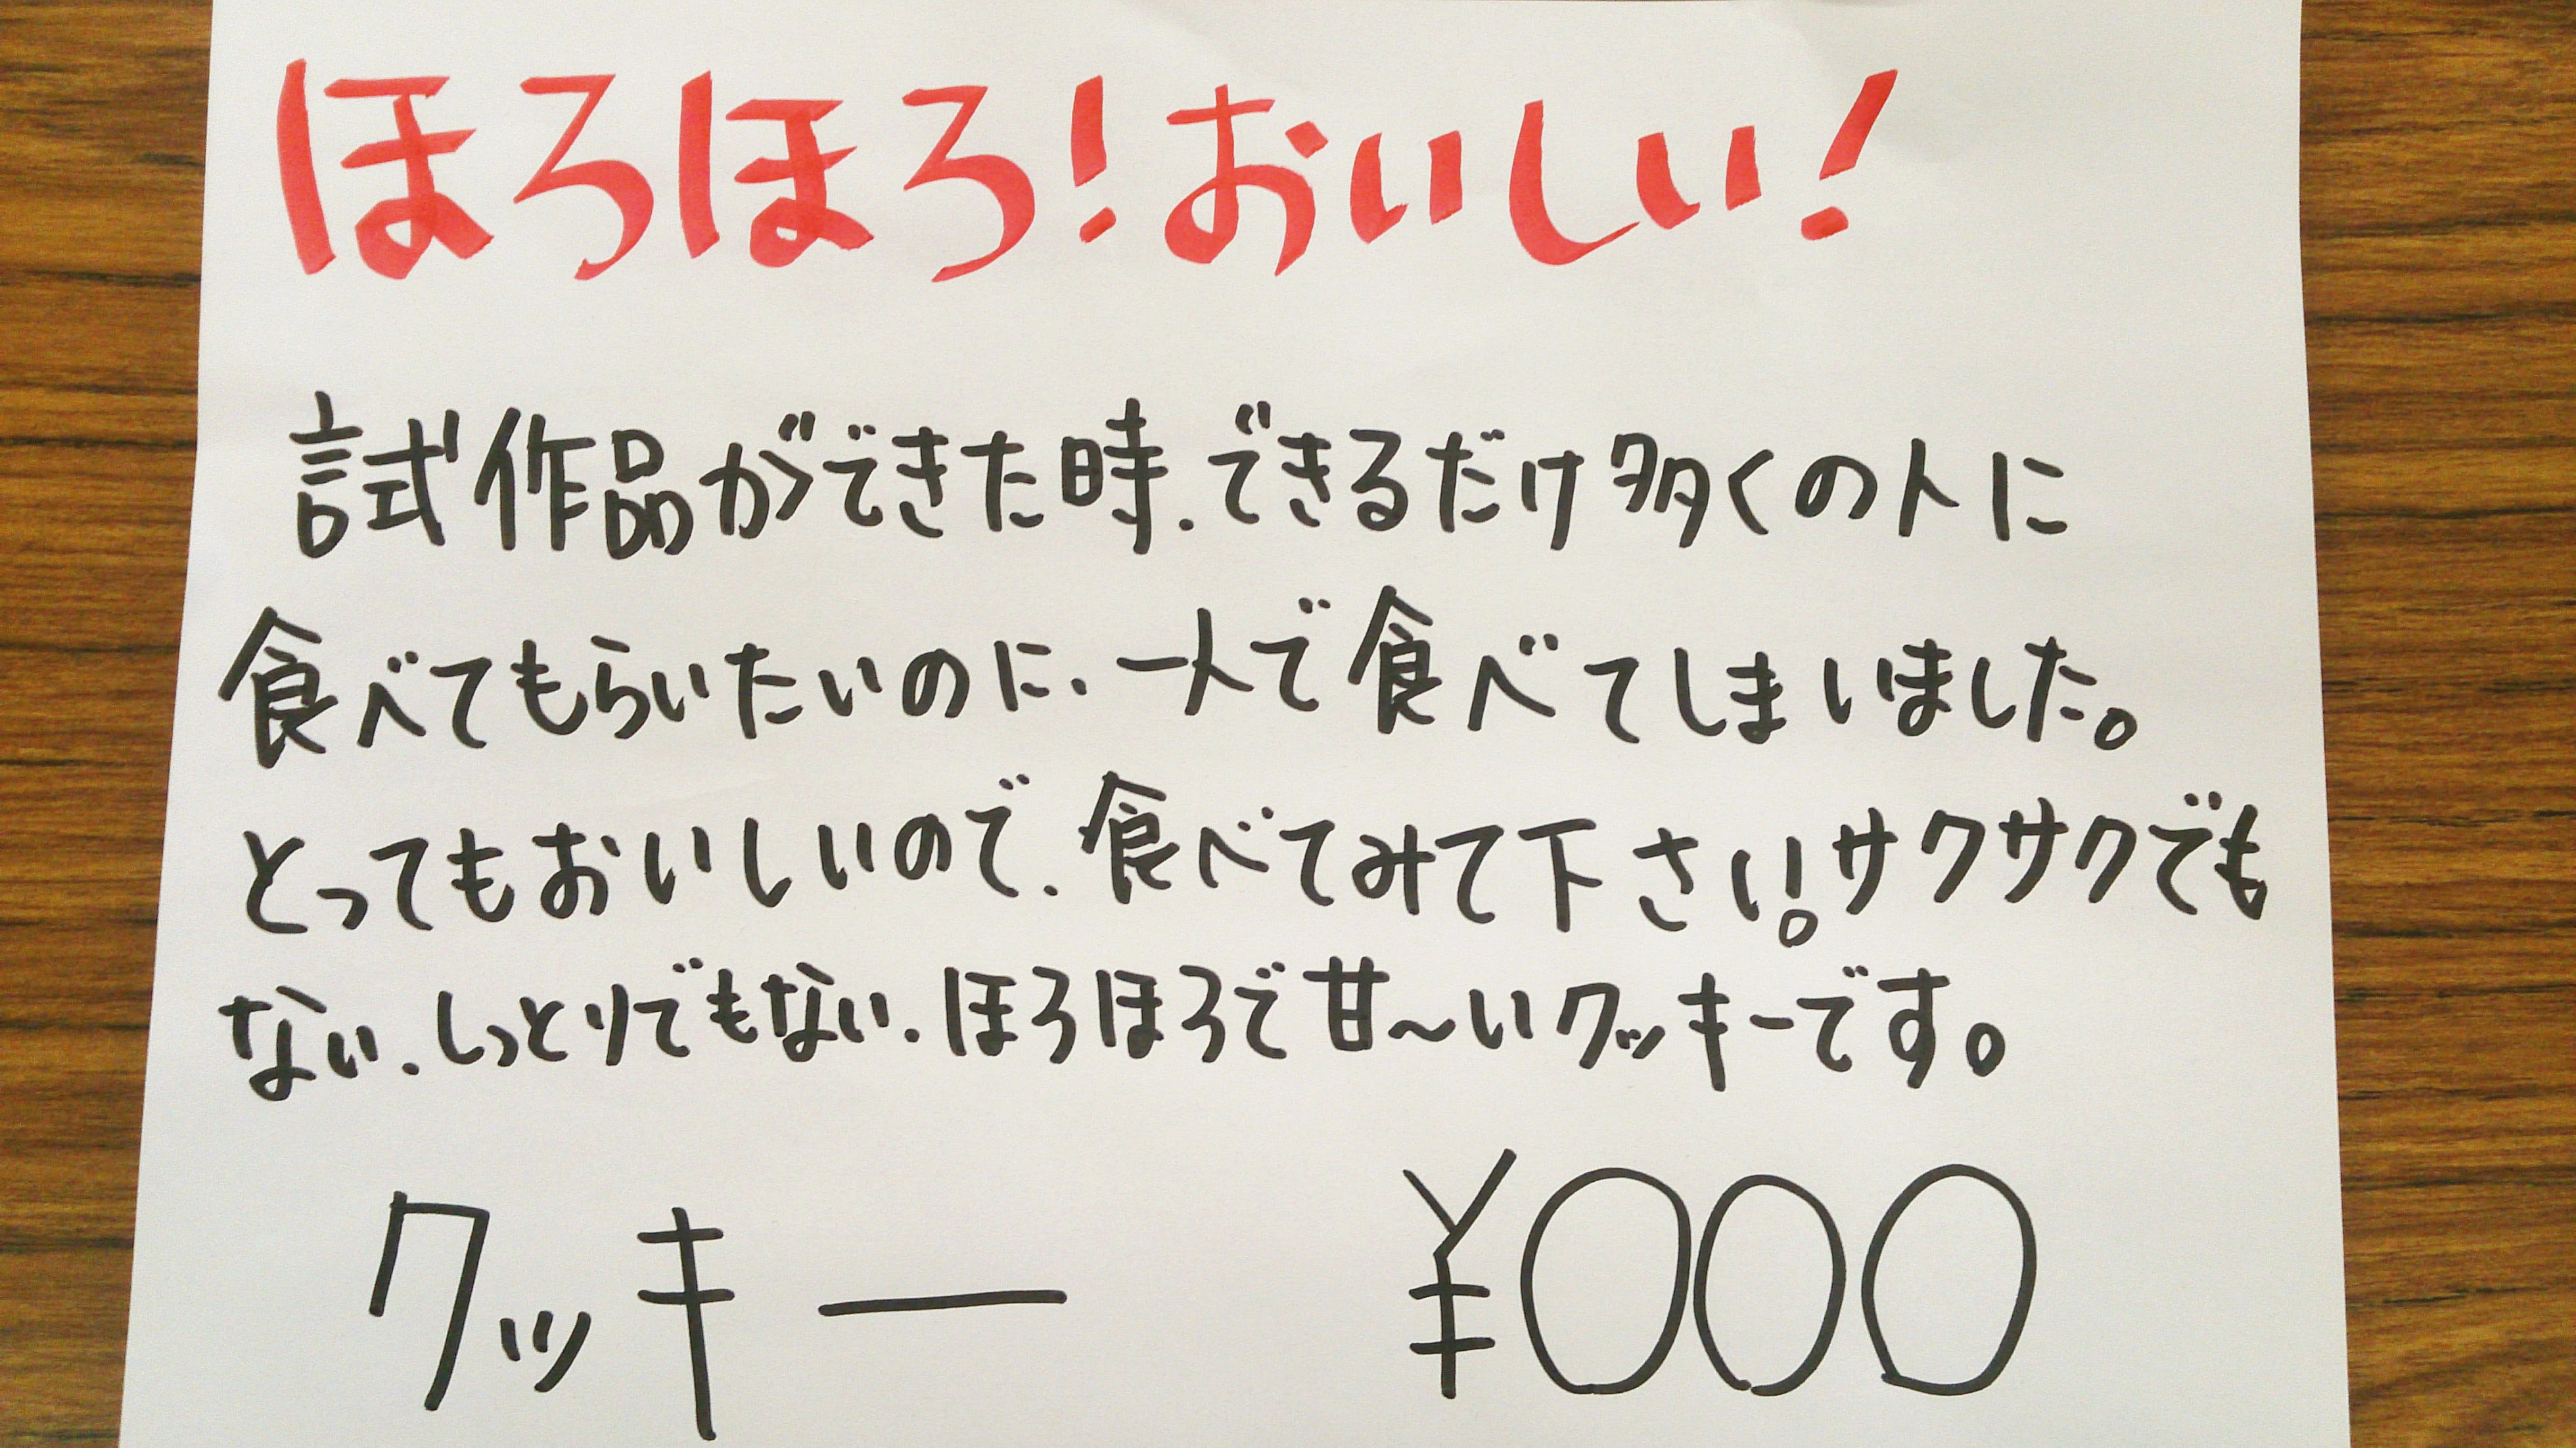 ほろほろ!おいしい!
試作品ができた時、できるだけ多くの人に
食べてもらいたいのに、一人で食べてしまいました。
とってもおいしいので、食べてみて下さい!。サクサクでも
ない、しっとりでもない、ほろほろで甘～いクッキーです。
クッキー ¥〇〇〇